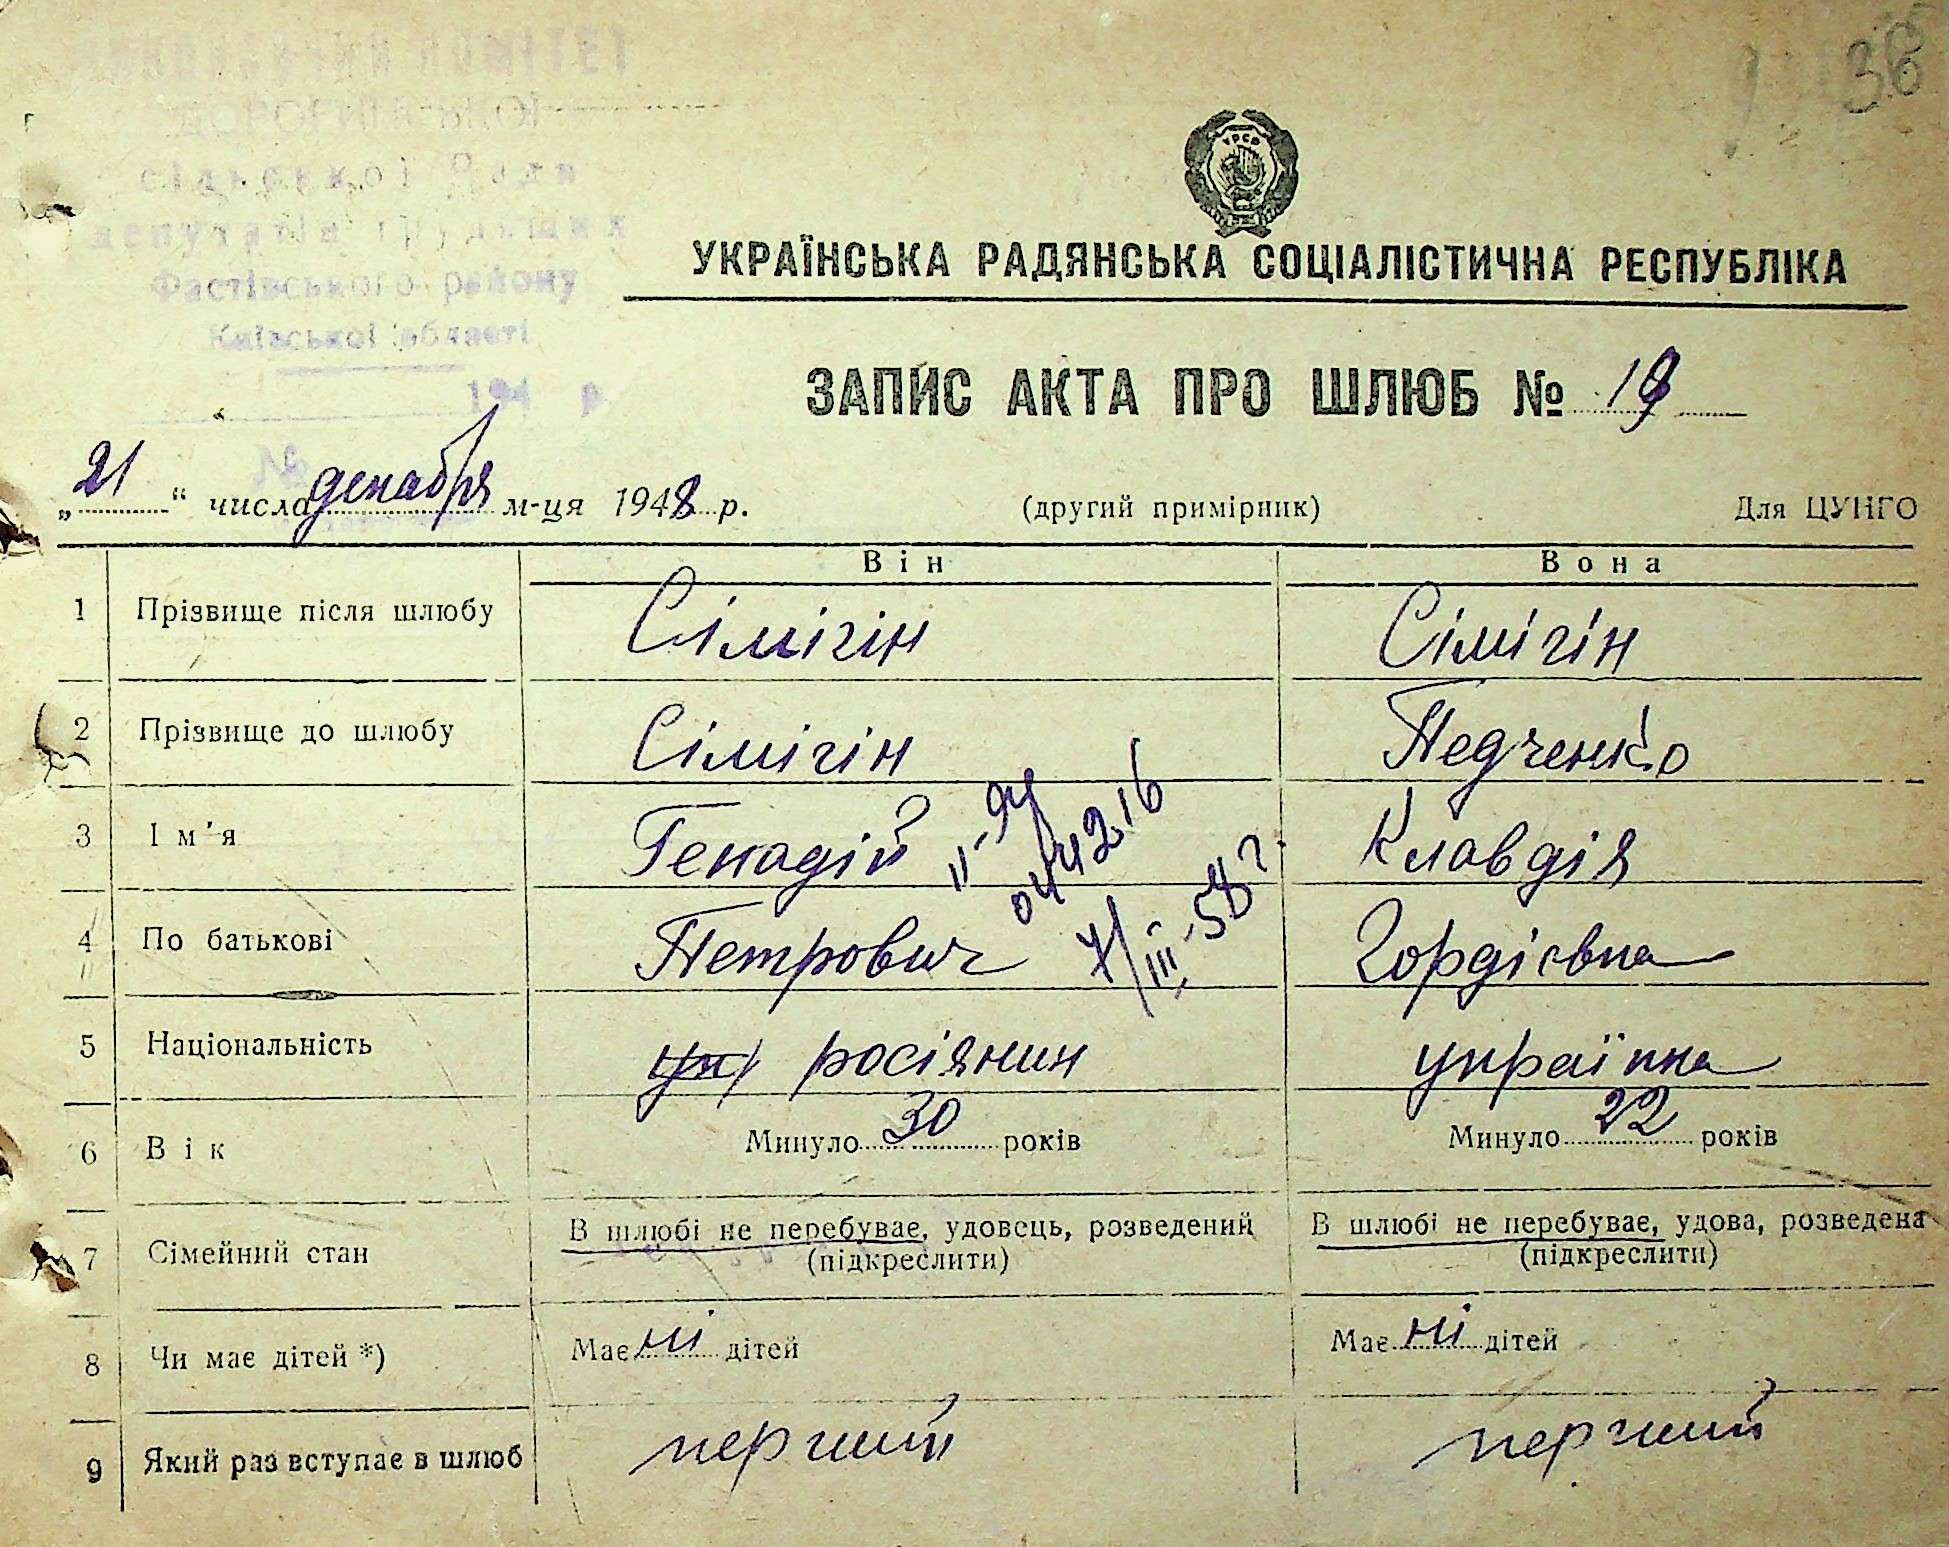 38
ДОРОГИНСЬКОЇ
сільської Ради
депутатів трудящих
Фастівського району
Київської області
194 р.
№
УРСР
УКРАЇНСЬКА РАДЯНСЬКА СОЦІАЛІСТИЧНА РЕСПУБЛІКА
ЗАПИС АКТА ПРО ШЛЮБ № 19
„21“ числа декабря м-ця 1948 р. (другий примірник) Для ЦУНГО
Він Вона
1 Прізвище після шлюбу Сімігін Сімігін
2 Прізвище до шлюбу Сімігін Педченко
3 Ім'я Генадій Клавдія
II-ЯЧ
044216
7/III-58 г.
4 По батькові Петрович Гордієвна
5 Національність укр росіянин українка
6 Вік Минуло 30 років Минуло 22 років
7 Сімейний стан В шлюбі не перебуває, удовець, розведений (підкреслити) В шлюбі не перебуває, удова, розведена (підкреслити)
8 Чи має дітей *) Має ні дітей Має ні дітей
9 Який раз вступає в шлюб перший перший